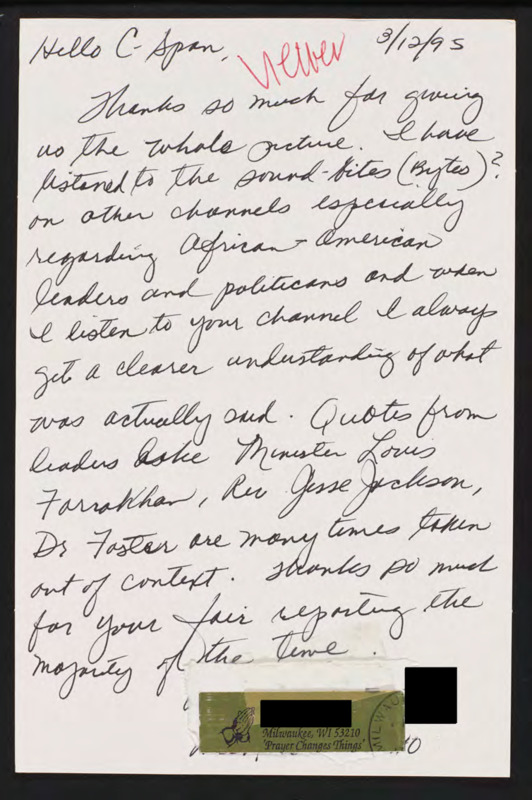 Hello C-Span,
Viewer
3/12/95
Thanks so much for giving
us the whole picture. I have
listened to the sound-bites (Bytes)?
on other channels especially
regarding African-American
leaders and politicans and when
I listen to your channel I always
get a clearer understanding of what
was actually said. Quotes from
leaders like Minister Louis
Farrakhan, Rev Jesse Jackson,
Dr Foster are many times taken
out of context. Thanks so much
for your fair reporting the
majority of the time.
Milwaukee, WI 53210
'Prayer Changes Things'
MILWAU
10